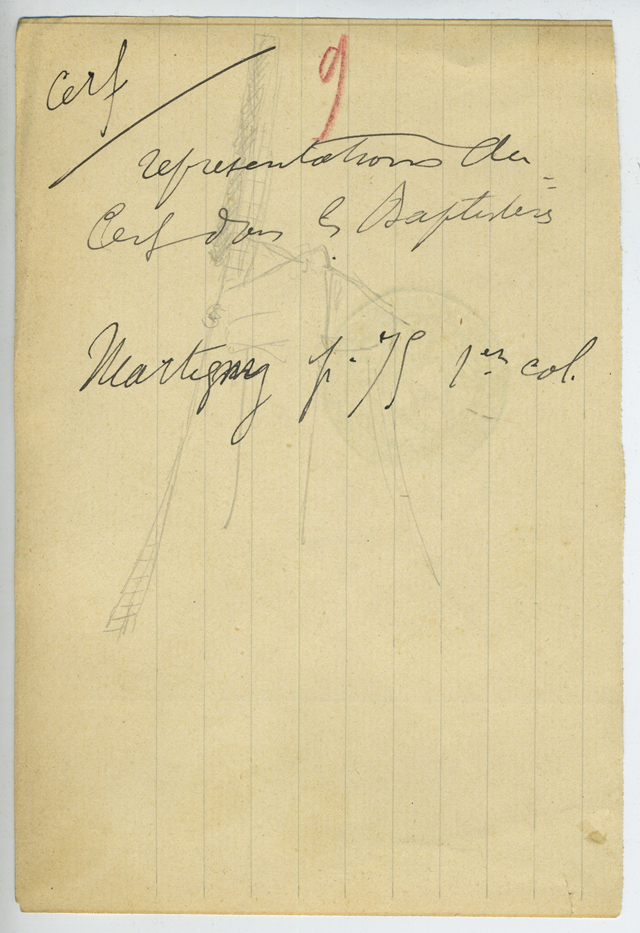 9
Cerf
representations du
Cerf dans les Baptistères
Martigny p. 75 1er col.